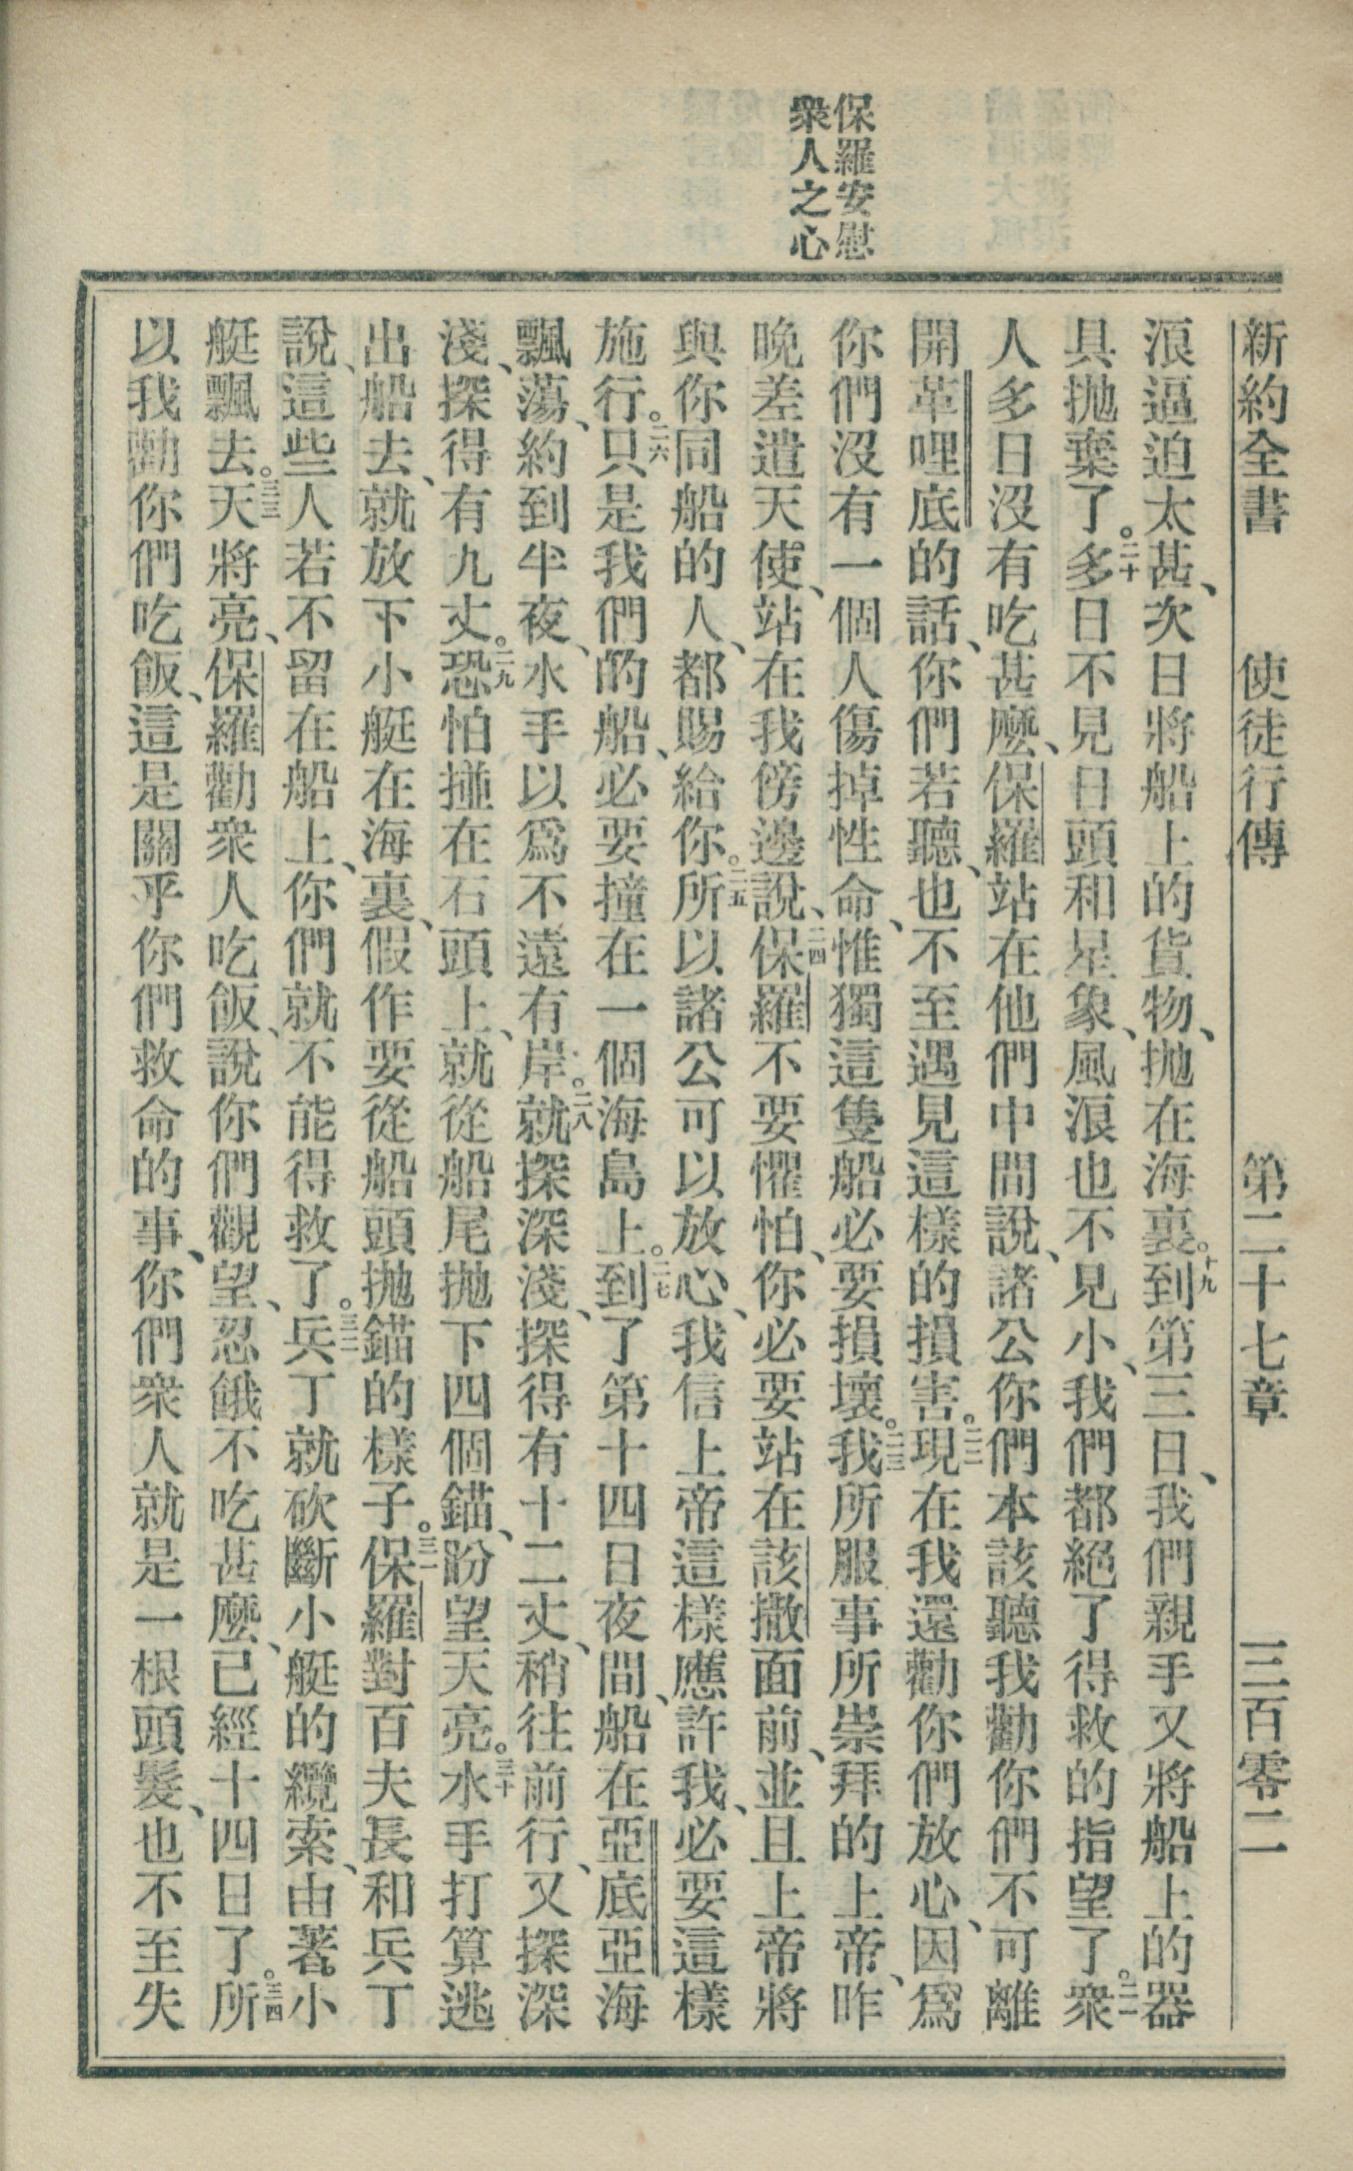 保羅安慰
衆人之心
新約全書 使徒行傳 第二十七章 三百零二
浪逼迫太甚、次日將船上的貨物、抛在海裏。十九到第三日、我們親手又將船上的器
具抛棄了。二十多日不見日頭和星象、風浪也不見小、我們都絕了得救的指望了。二一衆
人多日沒有吃甚麽、保羅站在他們中間說、諸公你們本該聽我勸你們不可離
開革哩底的話、你們若聽、也不至遇見這樣的損害。二二現在我還勸你們放心、因爲
你們沒有一個人傷掉性命、惟獨這隻船必要損壞。二三我所服事所崇拜的上帝、昨
晚差遣天使、站在我傍邊說、二四保羅不要懼怕、你必要站在該撒面前、並且上帝將
與你同船的人、都賜給你。二五所以諸公可以放心、我信上帝這樣應許我、必要這樣
施行。二六只是我們的船、必要撞在一個海島上。二七到了第十四日夜間、船在亞底亞海
飄蕩、約到半夜、水手以爲不遠有岸。二八就探深淺、探得有十二丈、稍往前行、又探深
淺、探得有九丈。二九恐怕撞在石頭上、就從船尾抛下四個錨、盼望天亮。三十水手打算逃
出船去、就放下小艇在海裏、假作要從船頭抛錨的樣子。三一保羅對百夫長和兵丁
說、這些人若不留在船上、你們就不能得救了。三二兵丁就砍斷小艇的纜索、由著小
艇飄去。三三天將亮、保羅勸衆人吃飯、說你們觀望、忍餓不吃甚麽、已經十四日了。三四所
以我勸你們吃飯、這是關乎你們救命的事、你們衆人就是一根頭髮、也不至失